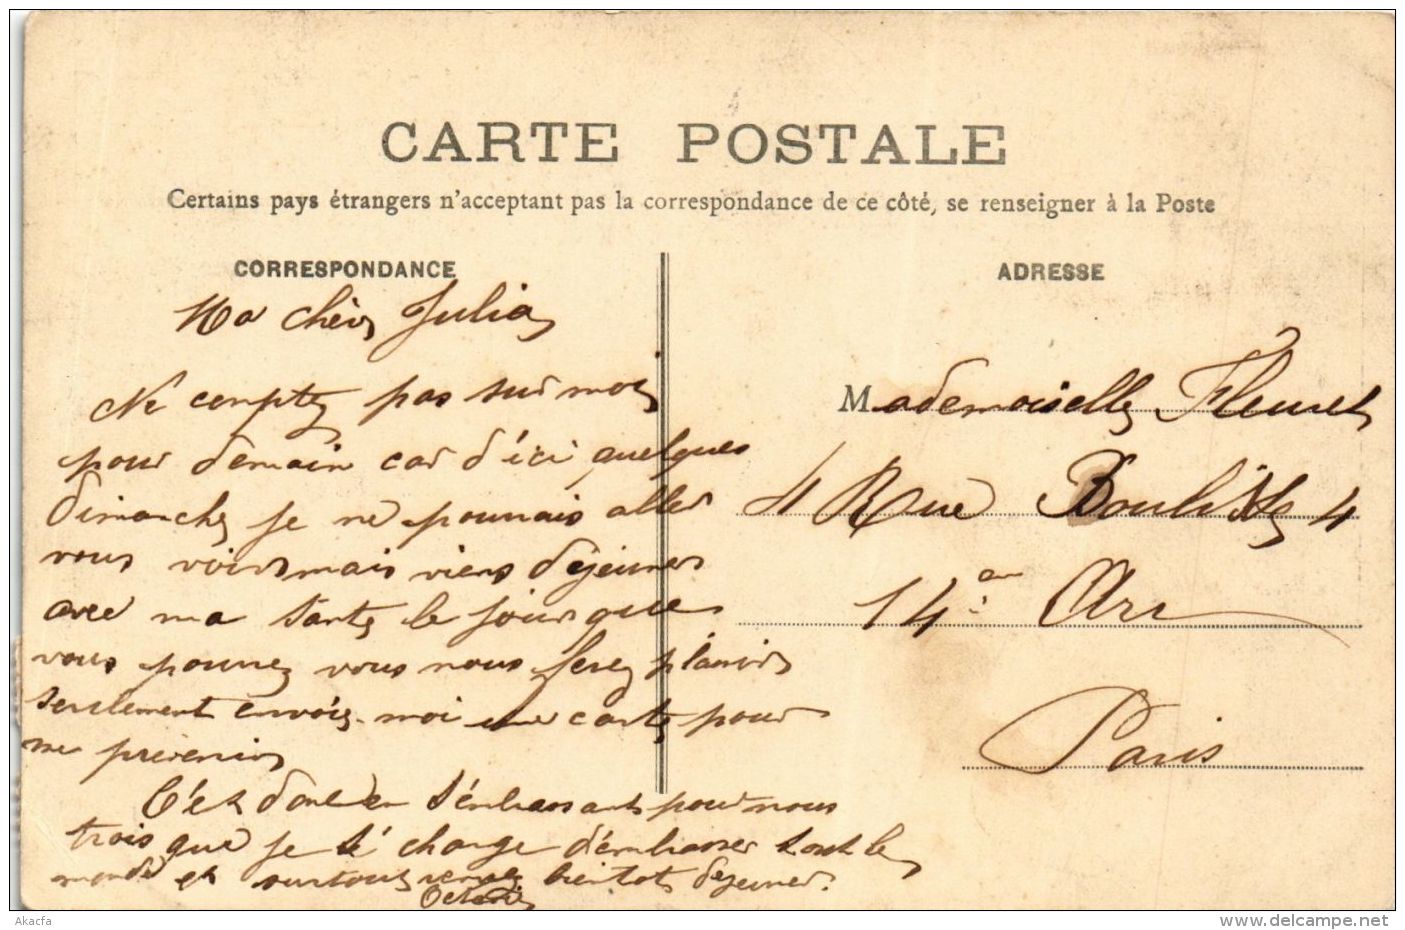 CARTE POSTALE
Certains pays étrangers n'acceptant pas la correspondance de ce côté, se renseigner à la Poste
CORRESPONDANCE
Ma chère Julia
Ne comptez pas sur moi
pour demain car d'ici quelques
dimanche je ne pourrais aller
vous voir mais viens déjeuner
avec ma tante le jour que
vous pourrez vous nous ferez plaisir
seulement envoie-moi une carte pour
me prévenir
C'est donc en t'embrassant pour nous
trois que je te charge d'embrasser tout le
monde et surtout venez bientôt déjeuner.
ADRESSE
Mademoiselle Fleuret
4 Rue 4
14 Arr
Paris
Akacfa
www.delcampe.net